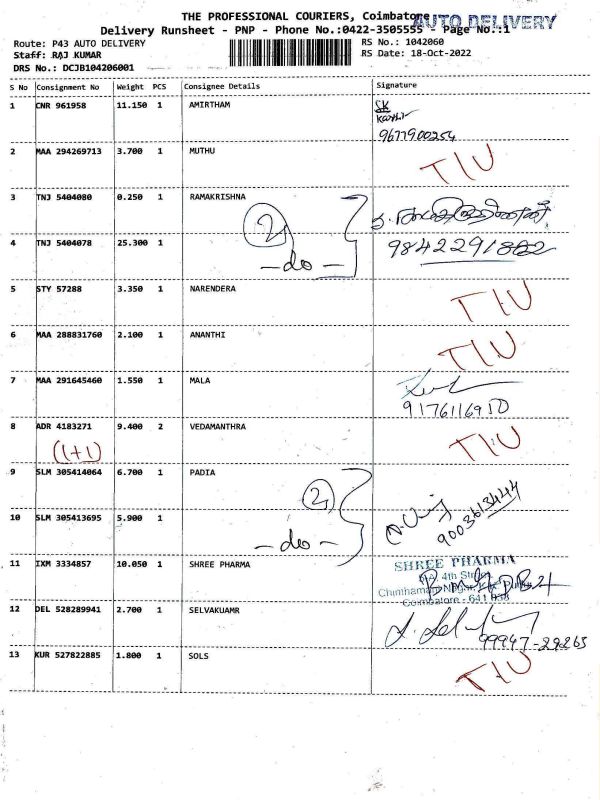 THE PROFESSIONAL COURIERS, Coimbatore
AUTO DELIVERY
Delivery Runsheet - PNP - Phone No.:0422-3505555 - Page No.:1
Route: P43 AUTO DELIVERY
RS No.: 1042060
Staff: RAJ KUMAR
RS Date: 18-Oct-2022
DRS No.: DCJB104206001
S No Consignment No Weight PCS Consignee Details Signature
1 CNR 961958 11.150 1 AMIRTHAM
SK
9677900254
2 MAA 294269713 3.700 1 MUTHU T/U
3 TNJ 5404080 0.250 1 RAMAKRISHNA
2
4 TNJ 5404078 25.300 1 9842291802
-do-
5 STY 57288 3.350 1 NARENDERA T/U
6 MAA 288831760 2.100 1 ANANTHI T/U
7 MAA 291645460 1.550 1 MALA
9176116950
8 ADR 4183271 9.400 2 VEDAMANTHRA T/U
(1+1)
9 SLM 305414064 6.700 1 PADIA
2
9003613444
10 SLM 305413695 5.900 1
-do-
11 IXM 3334857 10.050 1 SHREE PHARMA
SHREE PHARMA
4th Street
Coimbatore - 641
12 DEL 528289941 2.700 1 SELVAKUAMR
99947-29265
13 KUR 527822885 1.800 1 SOLS T/U